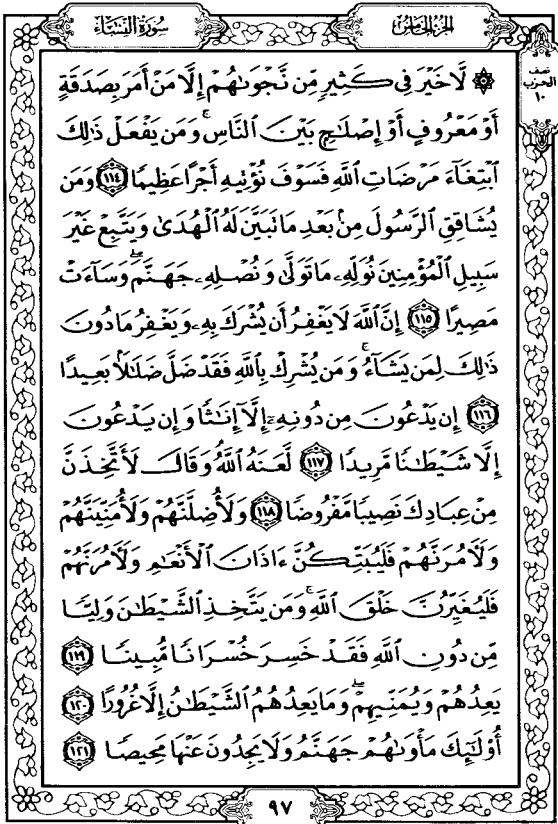 سُورَةُ النِّسَاءِ
الجُزْءُ الخَامِسُ
نصف
الحزب
١٠
۞ لَّا خَيْرَ فِي كَثِيرٍ مِّن نَّجْوَىٰهُمْ إِلَّا مَنْ أَمَرَ بِصَدَقَةٍ
أَوْ مَعْرُوفٍ أَوْ إِصْلَٰحٍۭ بَيْنَ ٱلنَّاسِۚ وَمَن يَفْعَلْ ذَٰلِكَ
ٱبْتِغَآءَ مَرْضَاتِ ٱللَّهِ فَسَوْفَ نُؤْتِيهِ أَجْرًا عَظِيمًا ١١٤ وَمَن
يُشَاقِقِ ٱلرَّسُولَ مِنۢ بَعْدِ مَا تَبَيَّنَ لَهُ ٱلْهُدَىٰ وَيَتَّبِعْ غَيْرَ
سَبِيلِ ٱلْمُؤْمِنِينَ نُوَلِّهِۦ مَا تَوَلَّىٰ وَنُصْلِهِۦ جَهَنَّمَۖ وَسَآءَتْ
مَصِيرًا ١١٥ إِنَّ ٱللَّهَ لَا يَغْفِرُ أَن يُشْرَكَ بِهِۦ وَيَغْفِرُ مَا دُونَ
ذَٰلِكَ لِمَن يَشَآءُۚ وَمَن يُشْرِكْ بِٱللَّهِ فَقَدْ ضَلَّ ضَلَٰلًۢا بَعِيدًا
١١٦ إِن يَدْعُونَ مِن دُونِهِۦٓ إِلَّآ إِنَٰثًا وَإِن يَدْعُونَ
إِلَّا شَيْطَٰنًا مَّرِيدًا ١١٧ لَّعَنَهُ ٱللَّهُۘ وَقَالَ لَأَتَّخِذَنَّ
مِنْ عِبَادِكَ نَصِيبًا مَّفْرُوضًا ١١٨ وَلَأُضِلَّنَّهُمْ وَلَأُمَنِّيَنَّهُمْ
وَلَءَامُرَنَّهُمْ فَلَيُبَتِّكُنَّ ءَاذَانَ ٱلْأَنْعَٰمِ وَلَءَامُرَنَّهُمْ
فَلَيُغَيِّرُنَّ خَلْقَ ٱللَّهِۚ وَمَن يَتَّخِذِ ٱلشَّيْطَٰنَ وَلِيًّا
مِّن دُونِ ٱللَّهِ فَقَدْ خَسِرَ خُسْرَانًا مُّبِينًا ١١٩
يَعِدُهُمْ وَيُمَنِّيهِمْۖ وَمَا يَعِدُهُمُ ٱلشَّيْطَٰنُ إِلَّا غُرُورًا ١٢٠
أُو۟لَٰٓئِكَ مَأْوَىٰهُمْ جَهَنَّمُ وَلَا يَجِدُونَ عَنْهَا مَحِيصًا ١٢١
٩٧